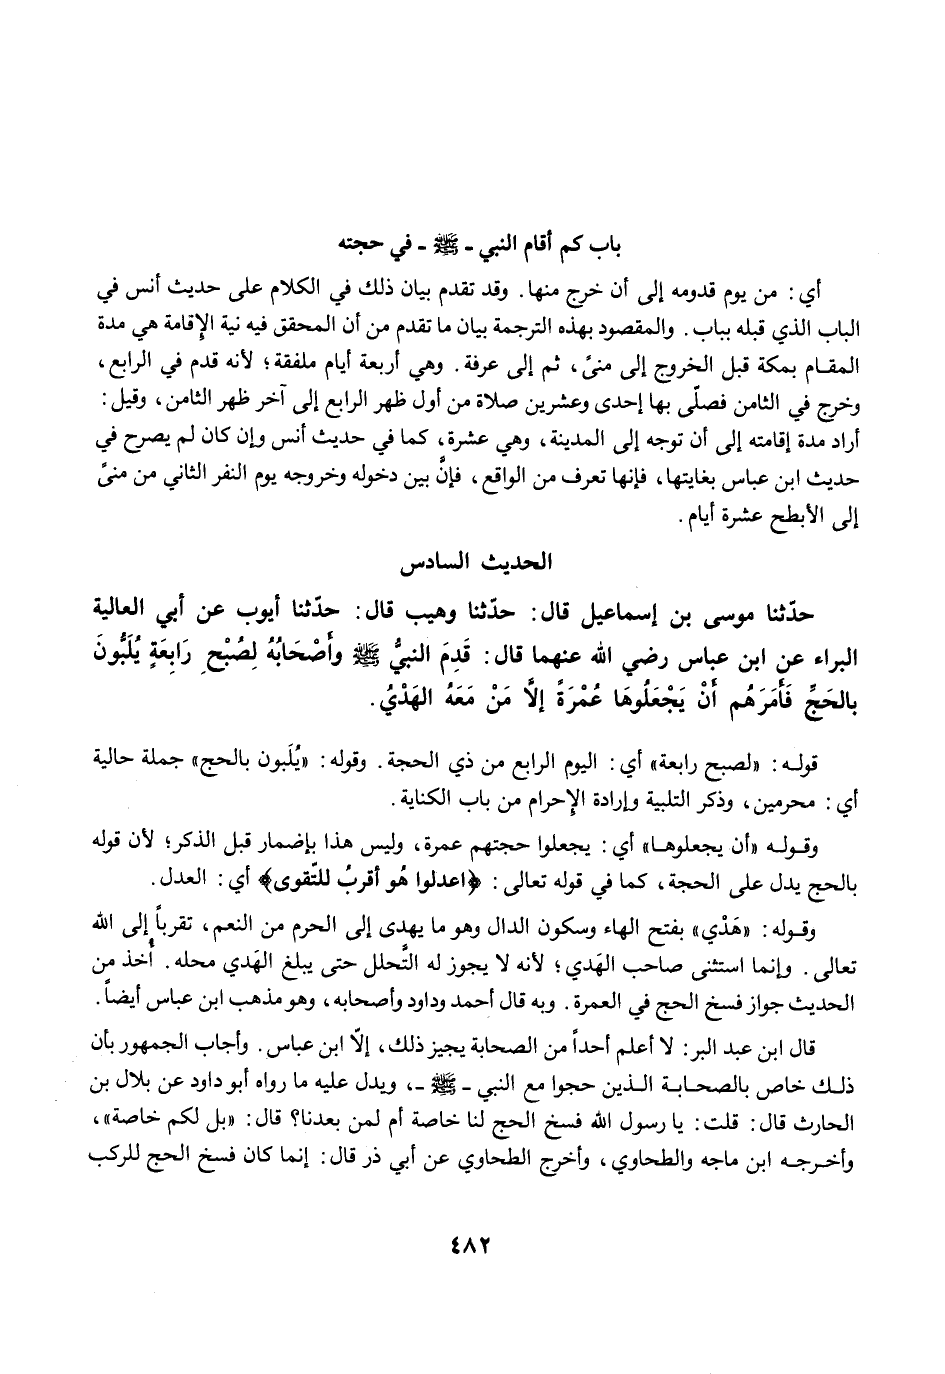 باب كم أقام النبي - ﷺ - في حجته
أي: من يوم قدومه إلى أن خرج منها. وقد تقدم بيان ذلك في الكلام على حديث أنس في
الباب الذي قبله بباب. والمقصود بهذه الترجمة بيان ما تقدم من أن المحقق فيه نية الإقامة هي مدة
المقام بمكة قبل الخروج إلى منىً، ثم إلى عرفة. وهي أربعة أيام ملفقة؛ لأنه قدم في الرابع،
وخرج في الثامن فصلّى بها إحدى وعشرين صلاة من أول ظهر الرابع إلى آخر ظهر الثامن، وقيل:
أراد مدة إقامته إلى أن توجه إلى المدينة، وهي عشرة، كما في حديث أنس وإن كان لم يصرح في
حديث ابن عباس بغايتها، فإنها تعرف من الواقع، فإنَّ بين دخوله وخروجه يوم النفر الثاني من منىً
إلى الأبطح عشرة أيام.
الحديث السادس
حدّثنا موسى بن إسماعيل قال: حدّثنا وهيب قال: حدّثنا أيوب عن أبي العالية
البراء عن ابن عباس رضي الله عنهما قال: قَدِمَ النبيُّ ﷺ وأَصْحَابُهُ لِصُبْحِ رَابِعَةٍ يُلَبُّونَ
بالحَجِّ فَأَمَرَهُم أَنْ يَجْعَلُوهَا عُمْرَةً إلاَّ مَنْ مَعَهُ الهَدْيُ.
قوله: «لصبح رابعة» أي: اليوم الرابع من ذي الحجة. وقوله: «يُلَبون بالحج» جملة حالية
أي: محرمين، وذكر التلبية وإرادة الإحرام من باب الكناية.
وقوله «أن يجعلوها» أي: يجعلوا حجتهم عمرة، وليس هذا بإضمار قبل الذكر؛ لأن قوله
بالحج يدل على الحجة، كما في قوله تعالى: ﴿اعدلوا هُو أقربُ للتّقوى﴾ أي: العدل.
وقوله: «هَدْي» بفتح الهاء وسكون الدال وهو ما يهدى إلى الحرم من النعم، تقرباً إلى الله
تعالى. وإنما استثنى صاحب الهَدي؛ لأنه لا يجوز له التَّحلل حتى يبلغ الهَدي محله. أُخذ من
الحديث جواز فسخ الحج في العمرة. وبه قال أحمد وداود وأصحابه، وهو مذهب ابن عباس أيضاً.
قال ابن عبد البر: لا أعلم أحداً من الصحابة يجيز ذلك، إلاّ ابن عباس. وأجاب الجمهور بأن
ذلك خاص بالصحابة الذين حجوا مع النبي - ﷺ -، ويدل عليه ما رواه أبو داود عن بلال بن
الحارث قال: قلت: يا رسول الله فسخ الحج لنا خاصة أم لمن بعدنا؟ قال: «بل لكم خاصة»،
وأخرجه ابن ماجه والطحاوي، وأخرج الطحاوي عن أبي ذر قال: إنما كان فسخ الحج للركب
٤٨٢